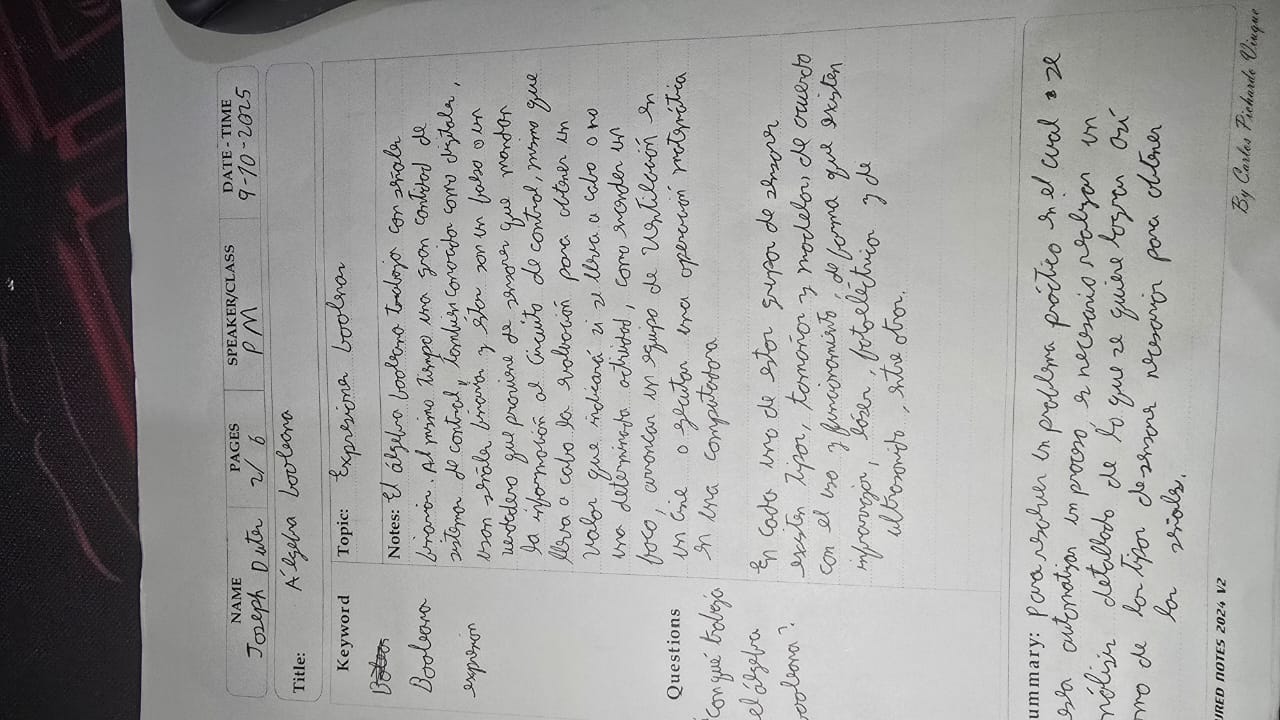 NAME PAGES SPEAKER/CLASS DATE - TIME
Joseph Duter 2/6 PM 9-10-2025
Title: Algebra booleana
Keyword
Booleana
expresion
Topic: Expresiones booleanas
Notes: El álgebra booleana trabaja con señales
binarias. Al mismo tiempo una gran cantidad de
sistemas de control, tambien conocidos como digitales,
usan señales binarias y estas son un falso o un
verdadero que proviene de sensores que mandan
la información al circuito de control, mismo que
lleva a cabo la evaluación para obtener un
valor que indicará si se lleva a cabo o no
una determinada actividad, como encender un
foco, arrancar un equipo de ventilación en
un cine o ejecutar una operación matemática
en una computadora
En cada uno de estos grupos de sensores
existen tipos, tamaños y modelos, de acuerdo
con el uso y funcionamiento, de forma que existen
infrarrojos, láser, fotoeléctricos y de
ultrasonido, entre otros.
Questions
¿Con qué trabaja
el álgebra
booleana?
ummary: Para resolver un problema práctico en el cual se
automatizar un proceso, es necesario realizar un
nálisis detallado de lo que se quiere lograr así
mo de los tipos de sensores necesarios para obtener
las señales.
RED NOTES 2024 V2
By Carlos Pichardo Viuque